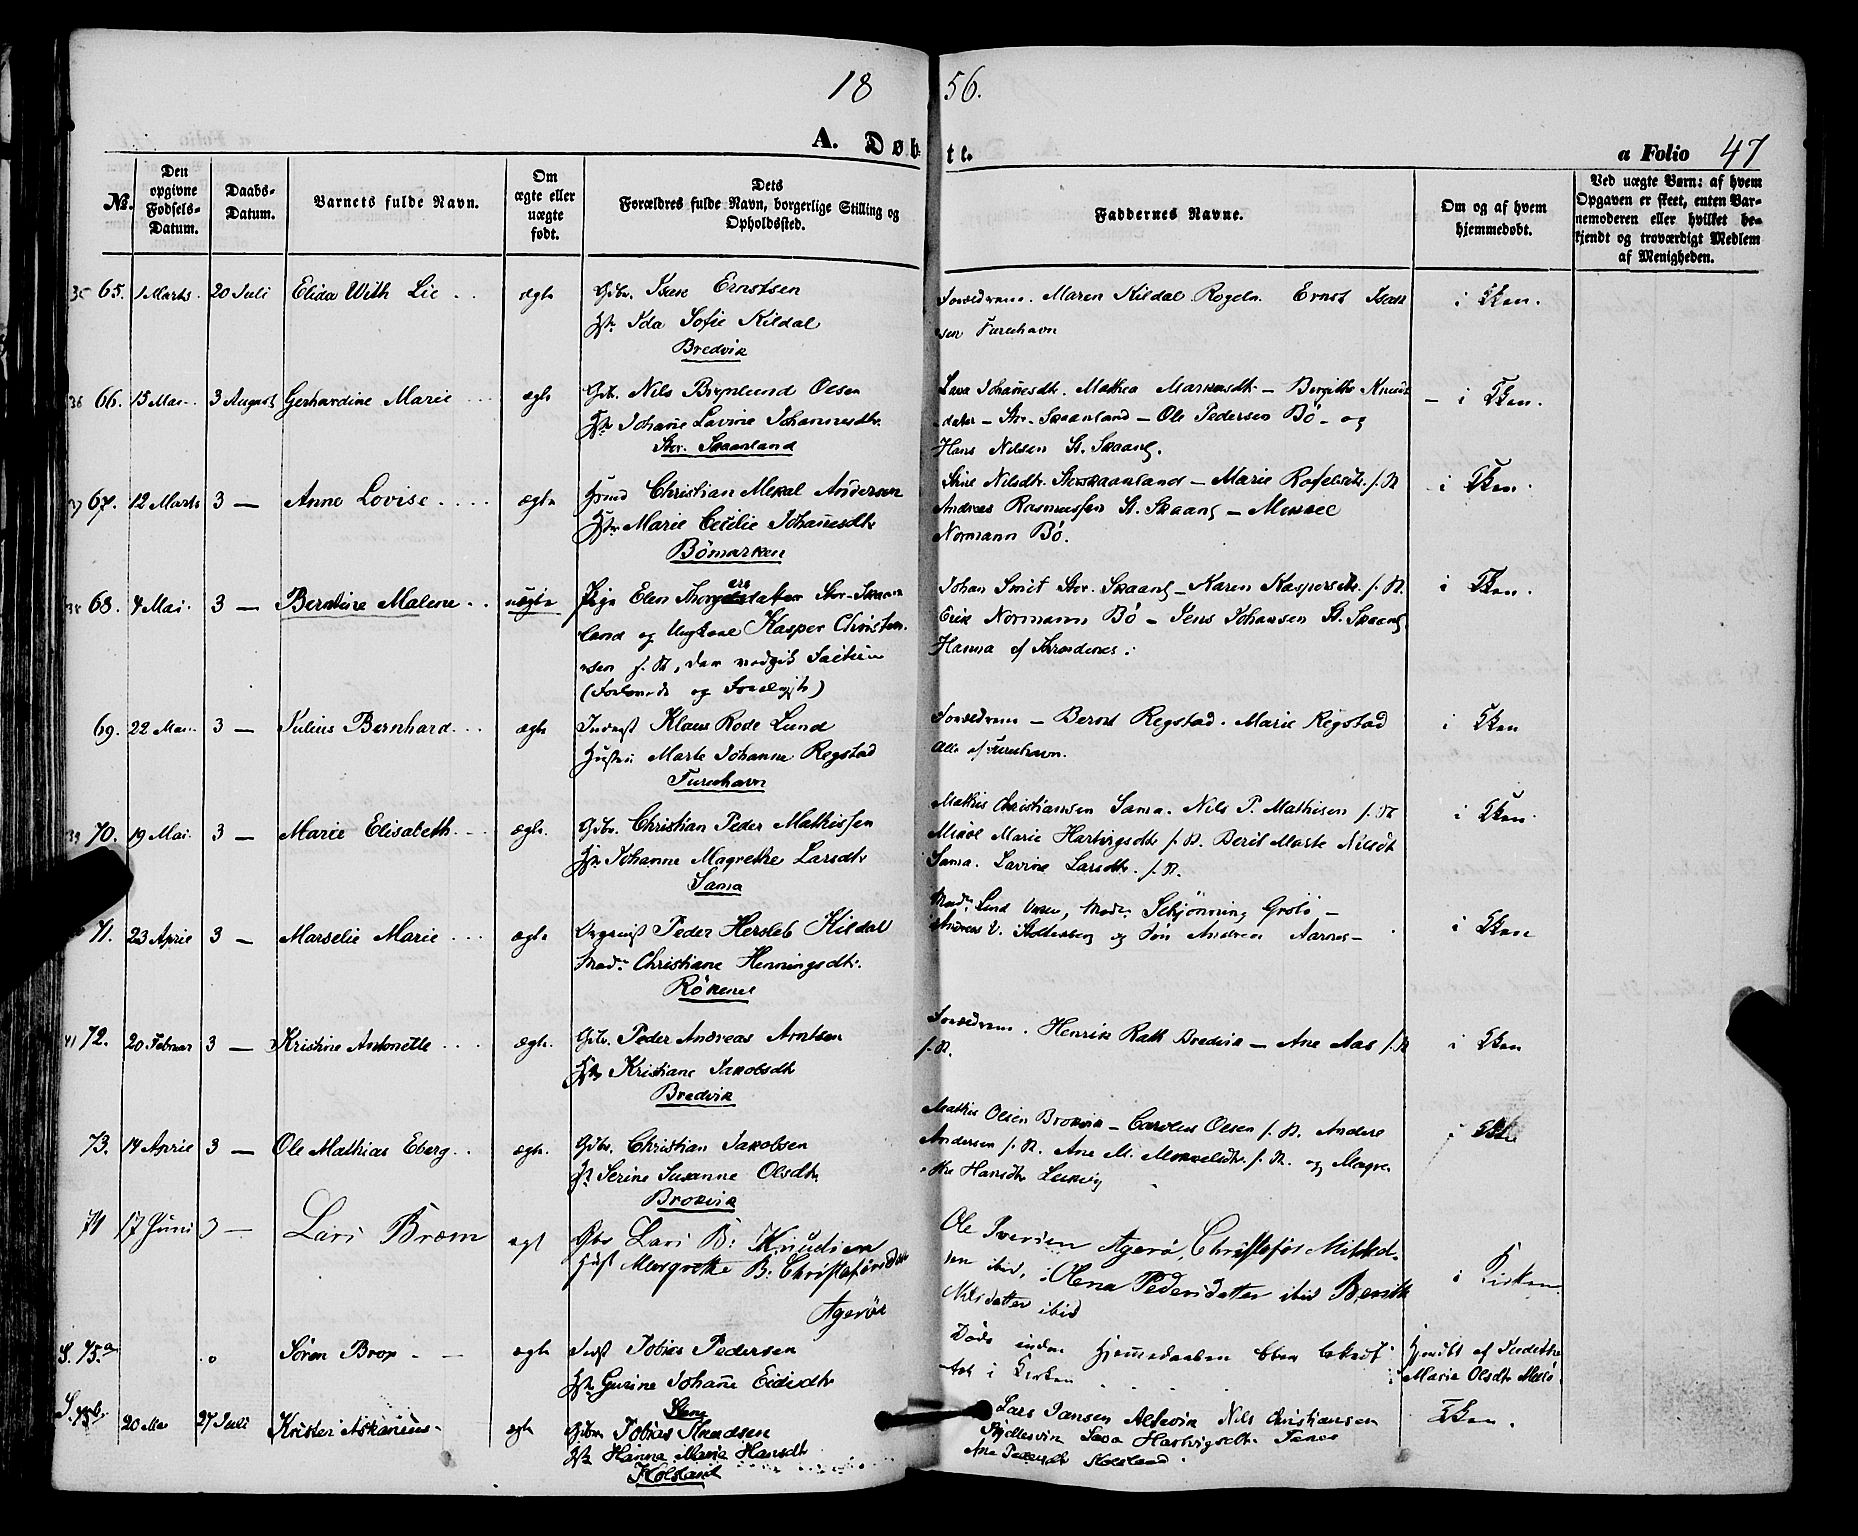 1856.
A. Døbte.
a Folio 47
No.
Den opgivne Fødsels-Datum.
Daabs-Datum.
Barnets fulde Navn.
Om ægte eller uægte født.
Dets Forældres fulde Navn, borgerlige Stilling og Opholdssted.
Faddernes Navne.
Om og af hvem hjemmedøbt.
Ved uægte Børn: af hvem Opgaven er skeet, enten Barnemoderen eller hvilket bekjendt og troværdigt Medlem af Menigheden.
35 65. 1 Marts. 20 Juli Elida With Lie . . ægte Gbr. Isac Ernstsen
Hst. Ida Sofie Kildal
Bredvik
Forældrene. Maren Kildal Ernst Isac
sen Furuhavn
i Kken.
36 66. 15 Mai. 3 August Gerhardine Marie . . . ægte Gbr. Nils Brynlund Olsen
Hst. Johane Lavine Johannesdtr.
Stor. Skaanland
Lava Johanesdtr. Mathea Markusdtr. – Bergitte Knuds
datter – Str. Skaanland – Ole Pedersen Bø – og
Hans Nilsen St. Skaanl.
– i Kken.
37 67. 12 Marts 3 – Anne Lovise . . . . ægte Hsmd Christian Mekal Andersen
Hst. Marie Cecilie Johanesdtr
Bømarken
Stine Nilsdtr. Storskaanland – Marie f. St.
Andreas Rasmussen St. Skaanl –
Normann Bø.
i Kken.
38 68. 4 Mai. 3 – Berntine Malene . . uægte Pige Elen Stor-Skaan
land og Ungkarl Kasper Christen
sen f. St,
Johan Smit Stor. Skaanl – Karen Kaspersdtr. f. St.
Erik Normann Bø – Jens Johansen St. Skaanl
Hanna af
i Kken.
69. 22 Mai. 3 – Julius Bernhard . . . ægte Inderst Klaus Rode Lund
Hustru Marte Johanna Regstad
Furuhavn
Forældrene – Berut Regstad. Marie Regstad
Alle af Furuhavn.
i Kken
39 70. 19 Mai. 3 – Marie Elisabeth . . . ægte. Gbr. Christian Peder Mathissen
Hst. Johanne Magrethe Larsdtr
Sama
Mathis Christiansen Sama. Nils P. Mathisen f. St
Marie Hartvigsdtr f. St. Berit Marte Nilsdt
Sama. Lavine Larsdtr. f. St.
i Kken.
71. 23 April 3 – Marselie Marie . . . ægte Organist Peder Hersleb Kildal
Mad. Christiane Henningsdtr.
Røkenes
Mad. Lund Mad. Schjønning Grøtø –
Andreas V. Stoltenberg og Jon Andreas Aarnes –
i Kken
41 72. 20 Februar 3 – Kristine Antonette . . . ægte. Gbr. Peder Andreas Arntsen
Hst. Kristiane Jakobsdtr
Bredvik
Forældrene. Henrik Rath Bredvik – Ane Aas f. St
f. St.
i Kken
73. 14 April 3 – Ole Mathias Eberg . . ægte. Gbr. Christian Jakobsen
Hst. Serine Susanne Olsdtr
Brokvik
Mathis Olsen Brokvik – Carolus Olsen f. St. Andere
Andersen f. St. Ane M. Mekkelsdtr. f. St. og Magre
the Hansdtr
i Kken
74 17 Juni 3 – Lars Bræm ægt Gbr Lars B: Knudsen
Hust Margrethe B: Christofersdatter
Agerøe
Ole Iversen Agerø, Christofer Mikkel-
sen ibid, Olena Pedersdatter ibid Berith
Nilsdatter ibid
i Kirken
S. 75.a Søren Brox – – ægte Indst Tobias Pedersen
Hst. Gurine Johane Eidisdtr
Stene
Døde inden
i Kirken
Hjemdt af Fredrikke
Marie Olsdtr
S. 75b. 20 Mai 27 Juli Krister Askanius – ægte Gbr. Tobias Knudsen
Hst. Hanna Maria Hansdt
Kolsland
Lars Jansen Altevik Nils Christiansen
Lava Hartvigsdtr.
Ane Pedersdtr Kolsland.
Kken.